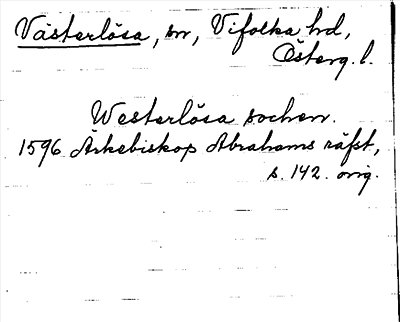 Västerlösa, sn, Vifolka hd,
Österg. l.
Westerlösa sochen.
1596 Ärkebiskop Abrahams räfst,
s. 142. orig.